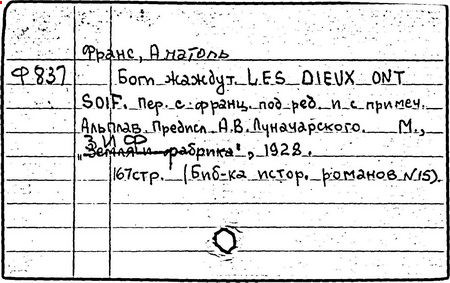 Франс, Анатоль
Ф837 Боги жаждут. LES DIEUX ONT
SOIF. Пер. с франц. под ред. и с примеч.
Альплав. Предисл. А.В. Луначарского. М.,
З И Ф
"Земля и фабрика", 1928.
167стр. (Биб-ка истор. романов N15).